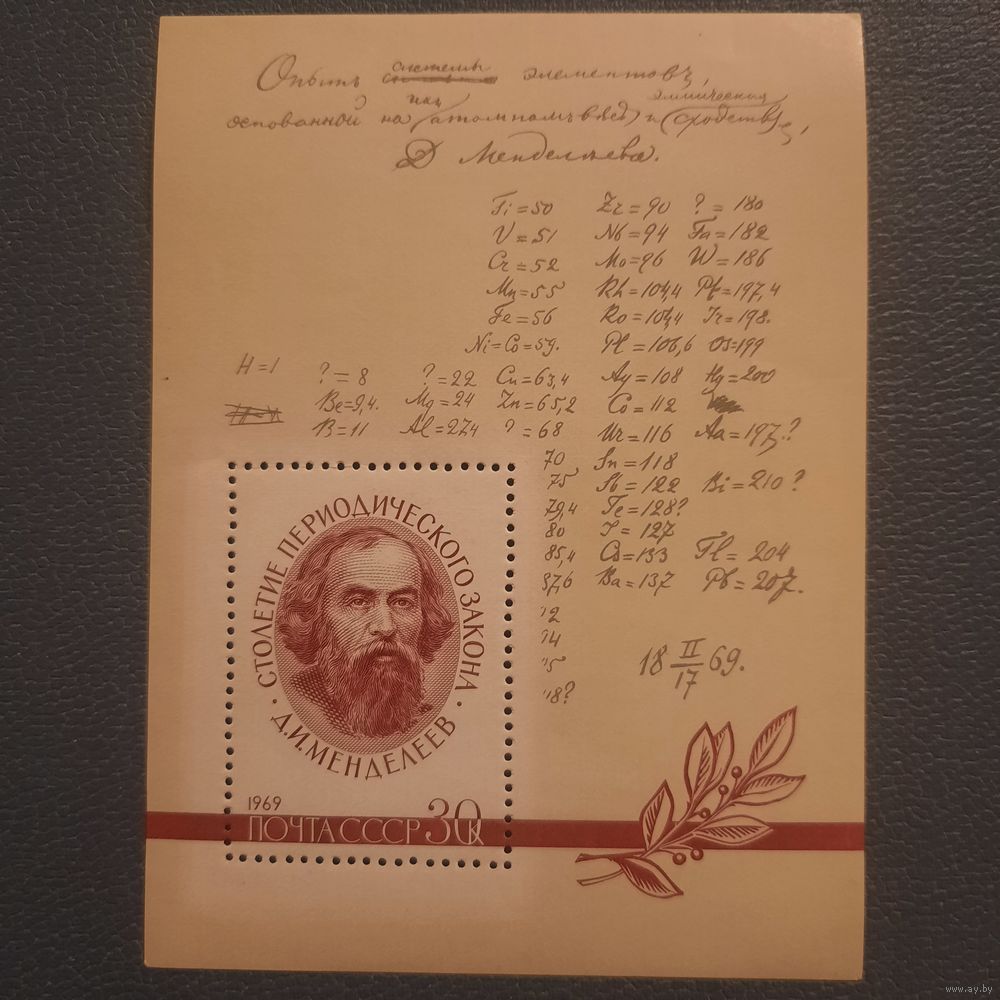 Опытъ системы элементовъ,
основанной на ихъ атомномъ вѣсѣ и химическомъ сходствѣ,
Д Менделѣева.
Ti=50 Zr=90 ?=180
V=51 Nb=94 Ta=182
Cr=52 Mo=96 W=186
Mn=55 Rh=104,4 Pt=197,4
Fe=56 Ro=104,4 Ir=198.
Ni=Co=59. Pl=106,6 Os=199
H=1 ?=8 ?=22 Cu=63,4 Ag=108 Hg=200
Be=9,4. Mg=24 Zn=65,2 Cd=112
B=11 Al=27,4 ?=68 Ur=116 Au=197?
70 Sn=118
75 Sb=122 Bi=210?
79,4 Te=128?
80 J=127
85,4 Cs=133 Tl=204
87,6 Ba=137 Pb=207.
18 II/17 69.
СТОЛЕТИЕ ПЕРИОДИЧЕСКОГО ЗАКОНА
Д.И.МЕНДЕЛЕЕВ
1969
ПОЧТА СССР 30 к
www.ay.by